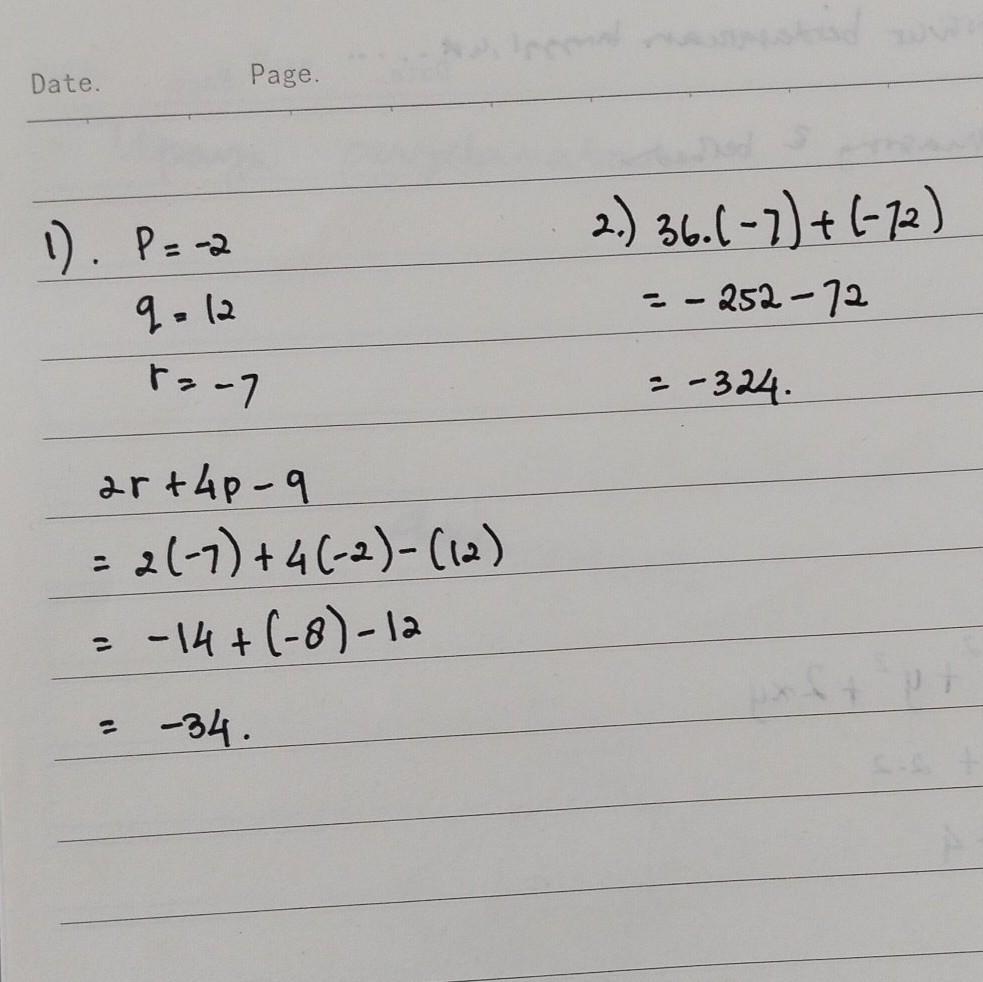 Date. Page.
1). P = -2
q = 12
r = -7
2r + 4p - q
= 2(-7) + 4(-2) - (12)
= -14 + (-8) - 12
= -34.
2.) 36.(-7) + (-72)
= - 252 - 72
= -324.